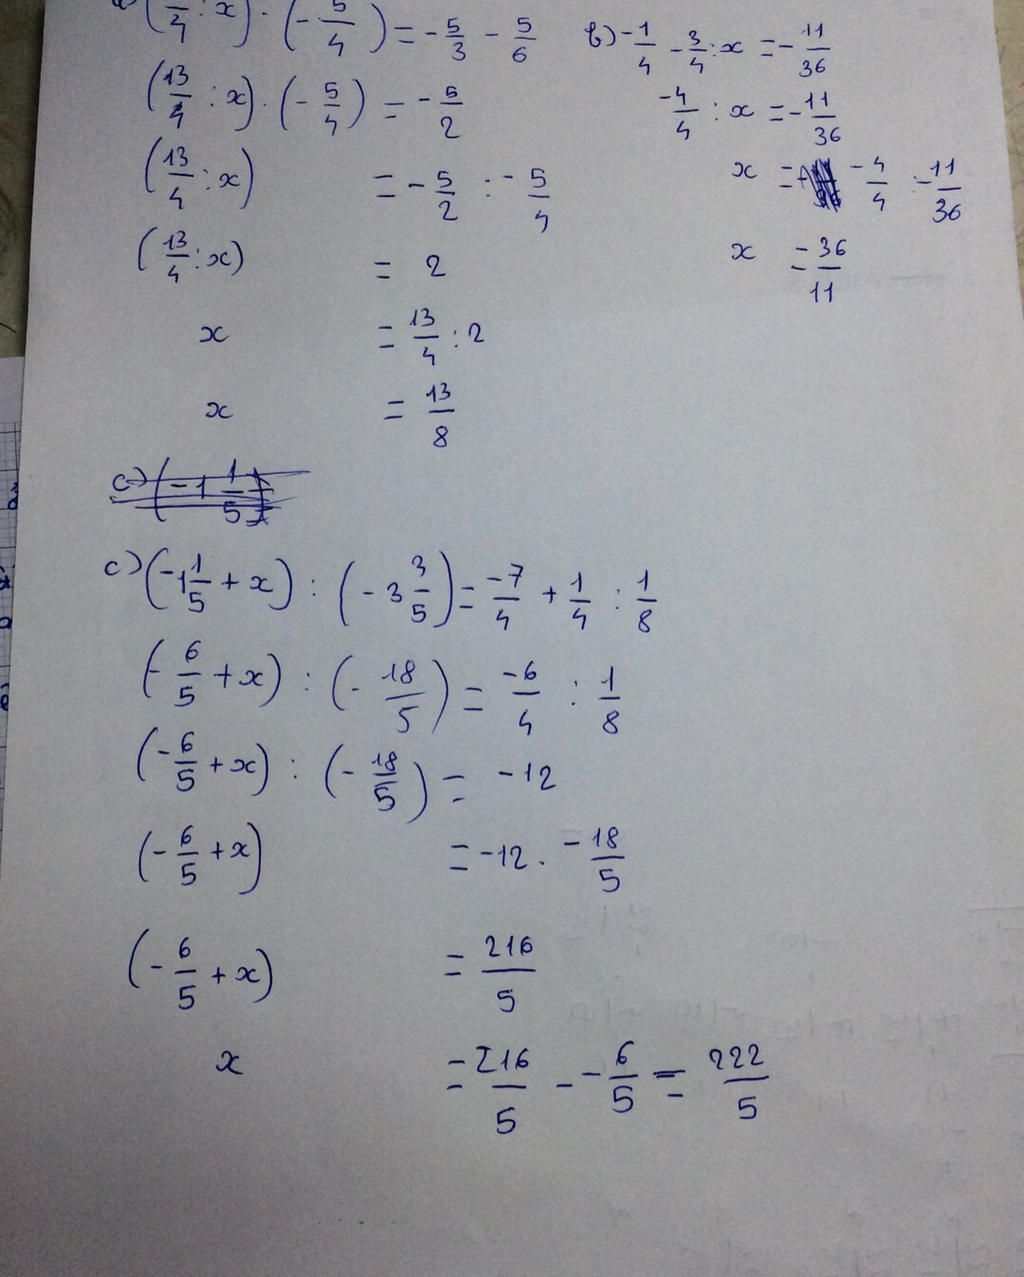 (/4 : x) . (-5/4) = -5/3 - 5/6
(13/4 : x) . (-5/4) = -5/2
(13/4 : x) = -5/2 : -5/4
(13/4 : x) = 2
x = 13/4 : 2
x = 13/8
b) -1/4 - 3/4 : x = -11/36
-4/4 : x = -11/36
x = -4/4 : -11/36
x = -36/11
c) (-1 1/5
c) (-1 1/5 + x) : (-3 3/5) = -7/4 + 1/4 : 1/8
(-6/5 + x) : (-18/5) = -6/4 : 1/8
(-6/5 + x) : (-18/5) = -12
(-6/5 + x) = -12 . -18/5
(-6/5 + x) = 216/5
x = 216/5 - -6/5 = 222/5